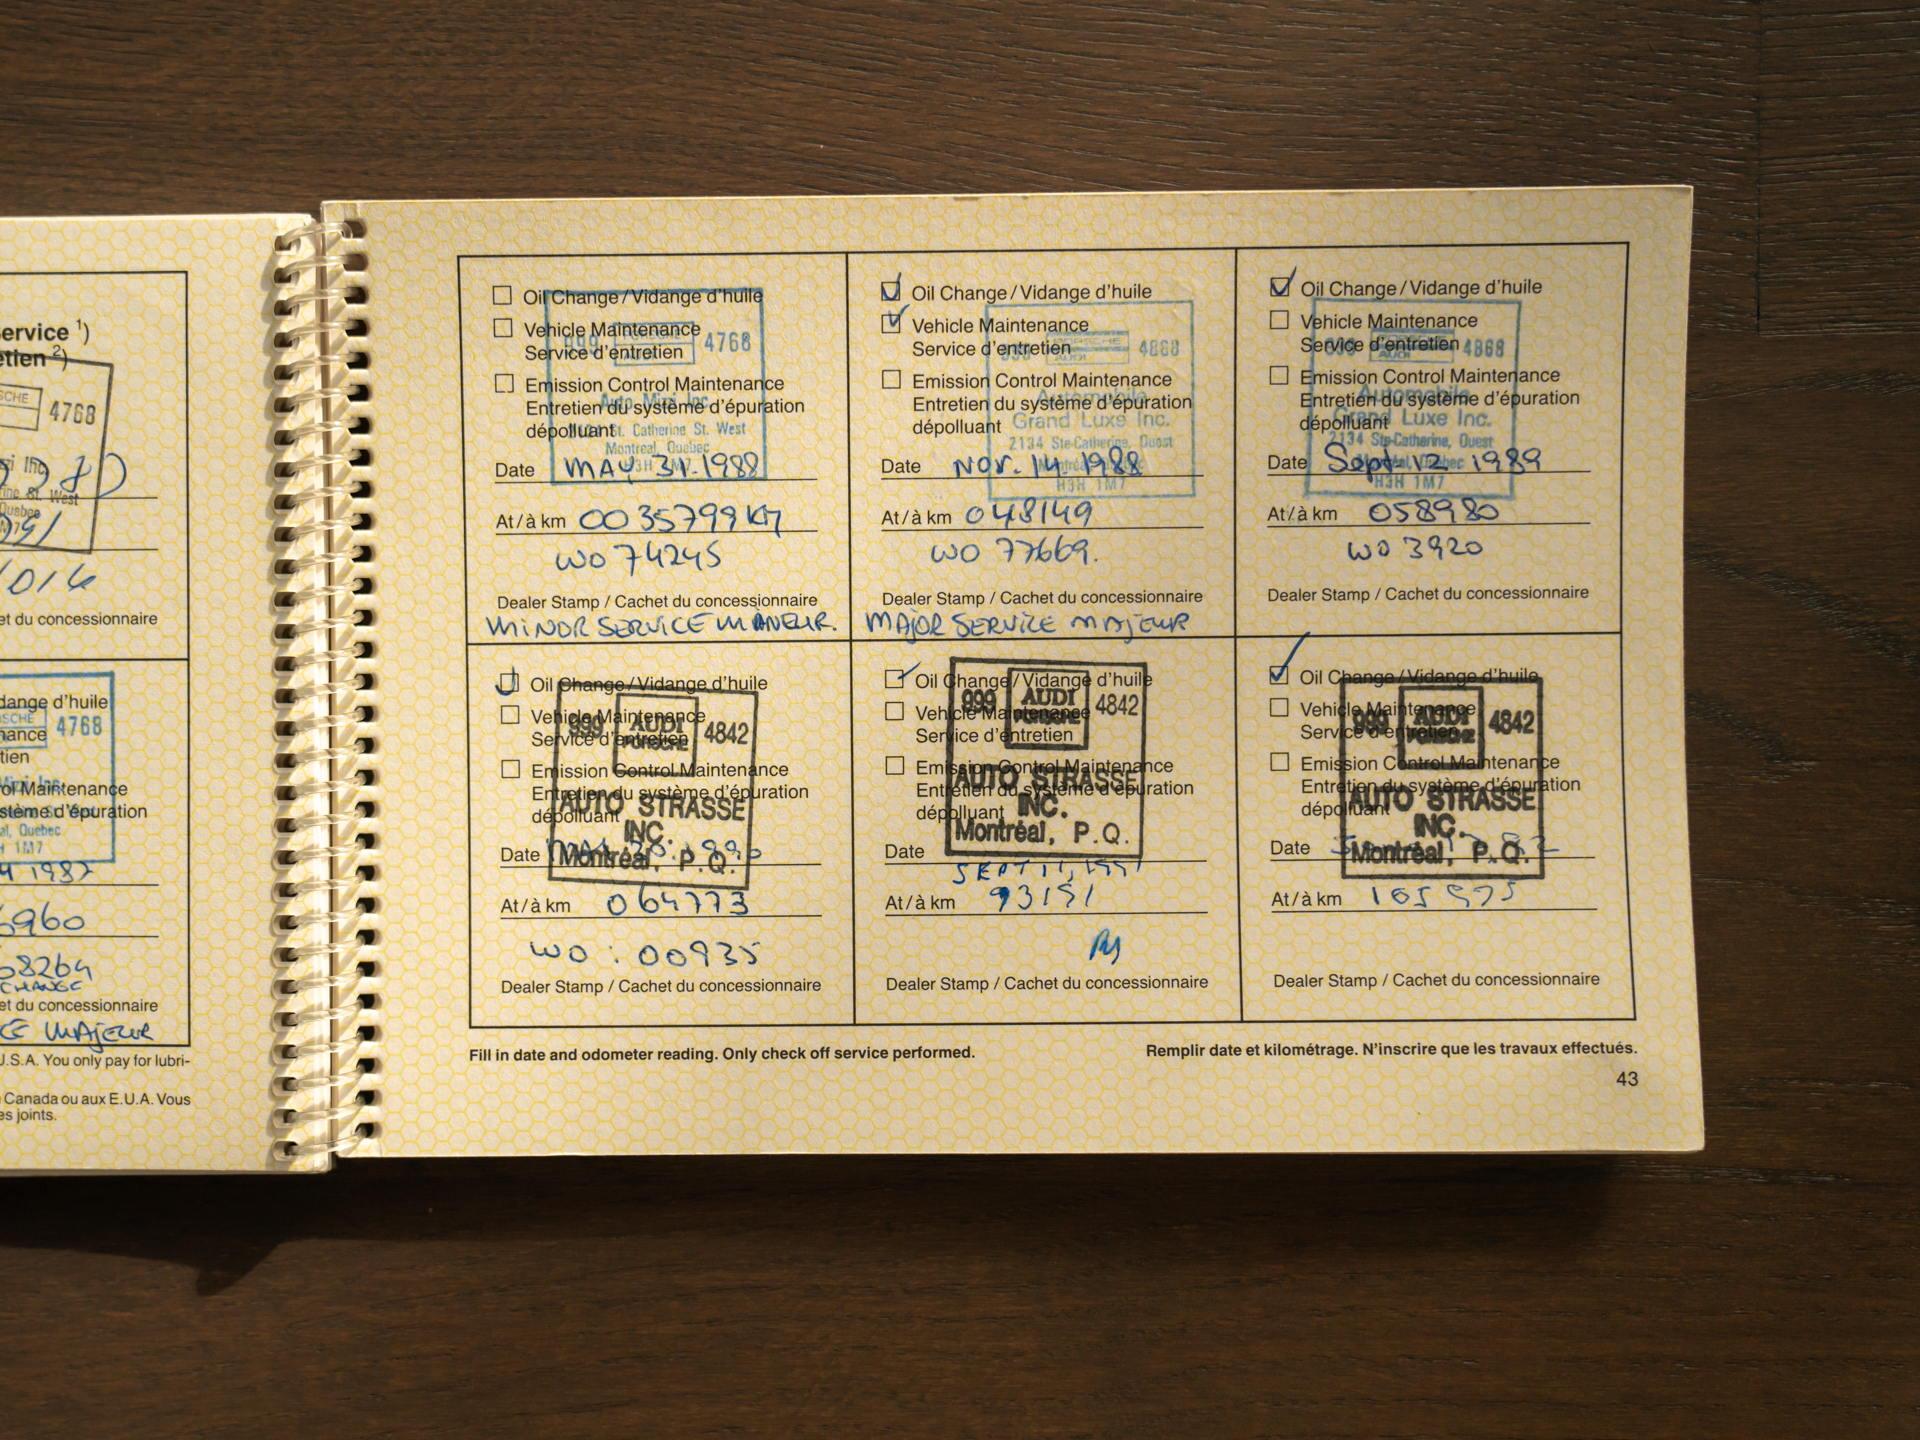 ervice ¹)
etien ²)
SCHE
4768
Inc.
St. West
1016
et du concessionnaire
dange d'huile
SCHE
4768
nance
tien
rol Maintenance
stème d'épuration
al, Quebec
1M7
1987
6960
68264
CHANGE
et du concessionnaire
CE MAJEUR
J.S.A. You only pay for lubri-
Canada ou aux E.U.A. Vous
es joints.
Oil Change / Vidange d'huile
Vehicle Maintenance
Service d'entretien
999
4768
Emission Control Maintenance
Entretien du système d'épuration
dépolluant
Auto Mizi Inc.
2134 St. Catherine St. West
Montreal, Quebec
H3H 1M7
Date MAY 31. 1988
At / à km 0035799 KM
WO 74245
Dealer Stamp / Cachet du concessionnaire
MINOR SERVICE MINEUR.
Oil Change / Vidange d'huile
Vehicle Maintenance
Service d'entretien
PORSCHE
AUDI
4868
Emission Control Maintenance
Entretien du système d'épuration
dépolluant
Automobile
Grand Luxe Inc.
2134 Ste-Catherine, Ouest
Montréal, Québec
H3H 1M7
Date NOV. 14. 1988
At / à km 048149
WO 77669.
Dealer Stamp / Cachet du concessionnaire
MAJOR SERVICE MAJEUR
Oil Change / Vidange d'huile
Vehicle Maintenance
Service d'entretien
AUDI
4868
Emission Control Maintenance
Entretien du système d'épuration
dépolluant
Automobile
Grand Luxe Inc.
2134 Ste-Catherine, Ouest
Montréal, Québec
H3H 1M7
Date Sept 12 1989
At / à km 058980
WO 3920
Dealer Stamp / Cachet du concessionnaire
Oil Change / Vidange d'huile
Vehicle Maintenance
Service d'entretien
999 AUDI PORSCHE 4842
Emission Control Maintenance
Entretien du système d'épuration
dépolluant
AUTO STRASSE
INC.
Montréal, P.Q.
Date
At / à km 064773
WO : 00935
Dealer Stamp / Cachet du concessionnaire
Oil Change / Vidange d'huile
Vehicle Maintenance
Service d'entretien
999 AUDI 4842
Emission Control Maintenance
Entretien du système d'épuration
dépolluant
AUTO STRASSE
INC.
Montréal, P.Q.
Date
SEPT 11, 1991
At / à km 93151
Dealer Stamp / Cachet du concessionnaire
Oil Change / Vidange d'huile
Vehicle Maintenance
Service d'entretien
999 AUDI PORSCHE 4842
Emission Control Maintenance
Entretien du système d'épuration
dépolluant
AUTO STRASSE
INC.
Montréal, P.Q.
Date
At / à km
Dealer Stamp / Cachet du concessionnaire
Fill in date and odometer reading. Only check off service performed.
Remplir date et kilométrage. N'inscrire que les travaux effectués.
43